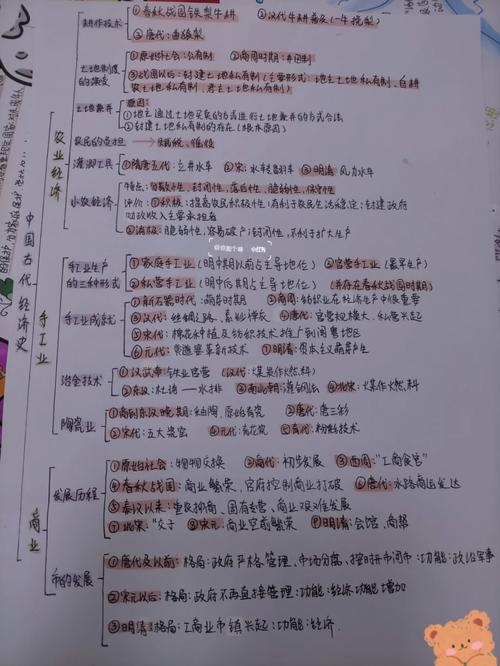 中国古代经济史
农业经济
耕作技术
①春秋战国铁犁牛耕 ②汉代牛耕普及(一牛挽犁)
③唐代:曲辕犁
土地制度的演变
①原始社会:公有制 ②商周时期:井田制
③战国以后:封建土地私有制(主要形式:地主土地私有制,自耕
农土地私有制,君主土地私有制)
土地兼并
原因:
①地主通过土地买卖的方式进行土地兼并的方式合法
②封建土地私有制的存在(根本原因)
农民的负担 → 赋税、徭役
灌溉工具
①隋唐五代:立井水车 ②宋:水转翻车 ③明清:风力水车
小农经济
特点:分散性,封闭性,落后性,脆弱性,保守性
评价:①积极:提高农民积极性;有利于农民生活稳定;封建政府
财政收入主要承担者
②消极:脆弱性,容易破产;封闭性,不利于扩大生产
手工业
手工业生产的三种形式
①家庭手工业(明中期以前占主导地位) ②官营手工业(最早生产)
③私营手工业(明中后期占主导地位) (并存在春秋战国时期)
手工业成就
①新石器时代:萌芽时期 ②商周:纺织业在经济生产中很重要
③汉代:丝绸之路、素纱禅衣 ④唐代:官营规模大,私营兴起
⑤宋代:棉花种植及纺织技术推广到闽粤地区
⑥元代:黄道婆革新技术 ⑦明清:资本主义萌芽产生
冶金技术
①汉武帝:冶铁业官营 (汉代:煤炭作燃料)
②东汉:杜诗——水排 ③南北朝:灌钢法 ④北宋:煤作燃料
陶瓷业
①商到东汉晚期:釉陶,原始青瓷 ②唐代:唐三彩
③宋代:五大瓷窑 ④元代:青花瓷 ⑤清代:粉彩技术
商业
发展历程
①原始社会:物物交换 ②商代:初步发展 ③西周:"工商食官"
④春秋战国:商业繁荣、官府控制商业打破 ⑥唐代:水路商运发达
⑤秦汉以来:重农抑商、国有专营、商业艰难发展
⑦北宋:"交子" ⑧宋元:商业空前繁荣 ⑨明清:会馆、商帮
市的发展
①唐代及以前:格局:政府严格管理、市坊分离、按时开市闭市;功能:政治军事
②宋元以后:格局:政府不再直接管理;功能:经济功能增加
③明清:格局:工商业市镇兴起;功能:经济.
小红书